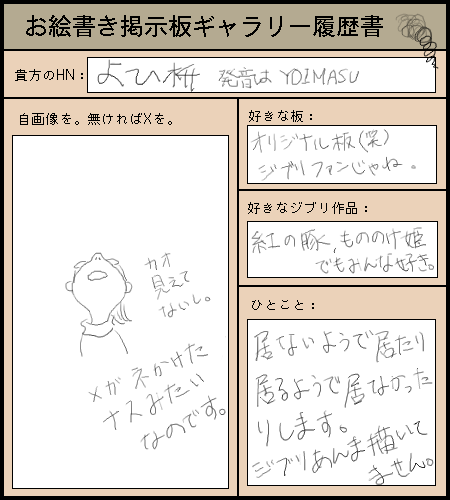 お絵書き掲示板ギャラリー履歴書
貴方のHN：
よひ枡 発音は YOIMASU
自画像を。無ければXを。
カオ
見えて
ないし。
メガネかけた
ナスみたい
なのです。
好きな板：
オリジナル板(笑)
ジブリファンじゃね。
好きなジブリ作品：
紅の豚,もののけ姫
でもみんな好き。
ひとこと：
居ないようで居たり
居るようで居なかった
りします。
ジブリあんま描いて
ません。